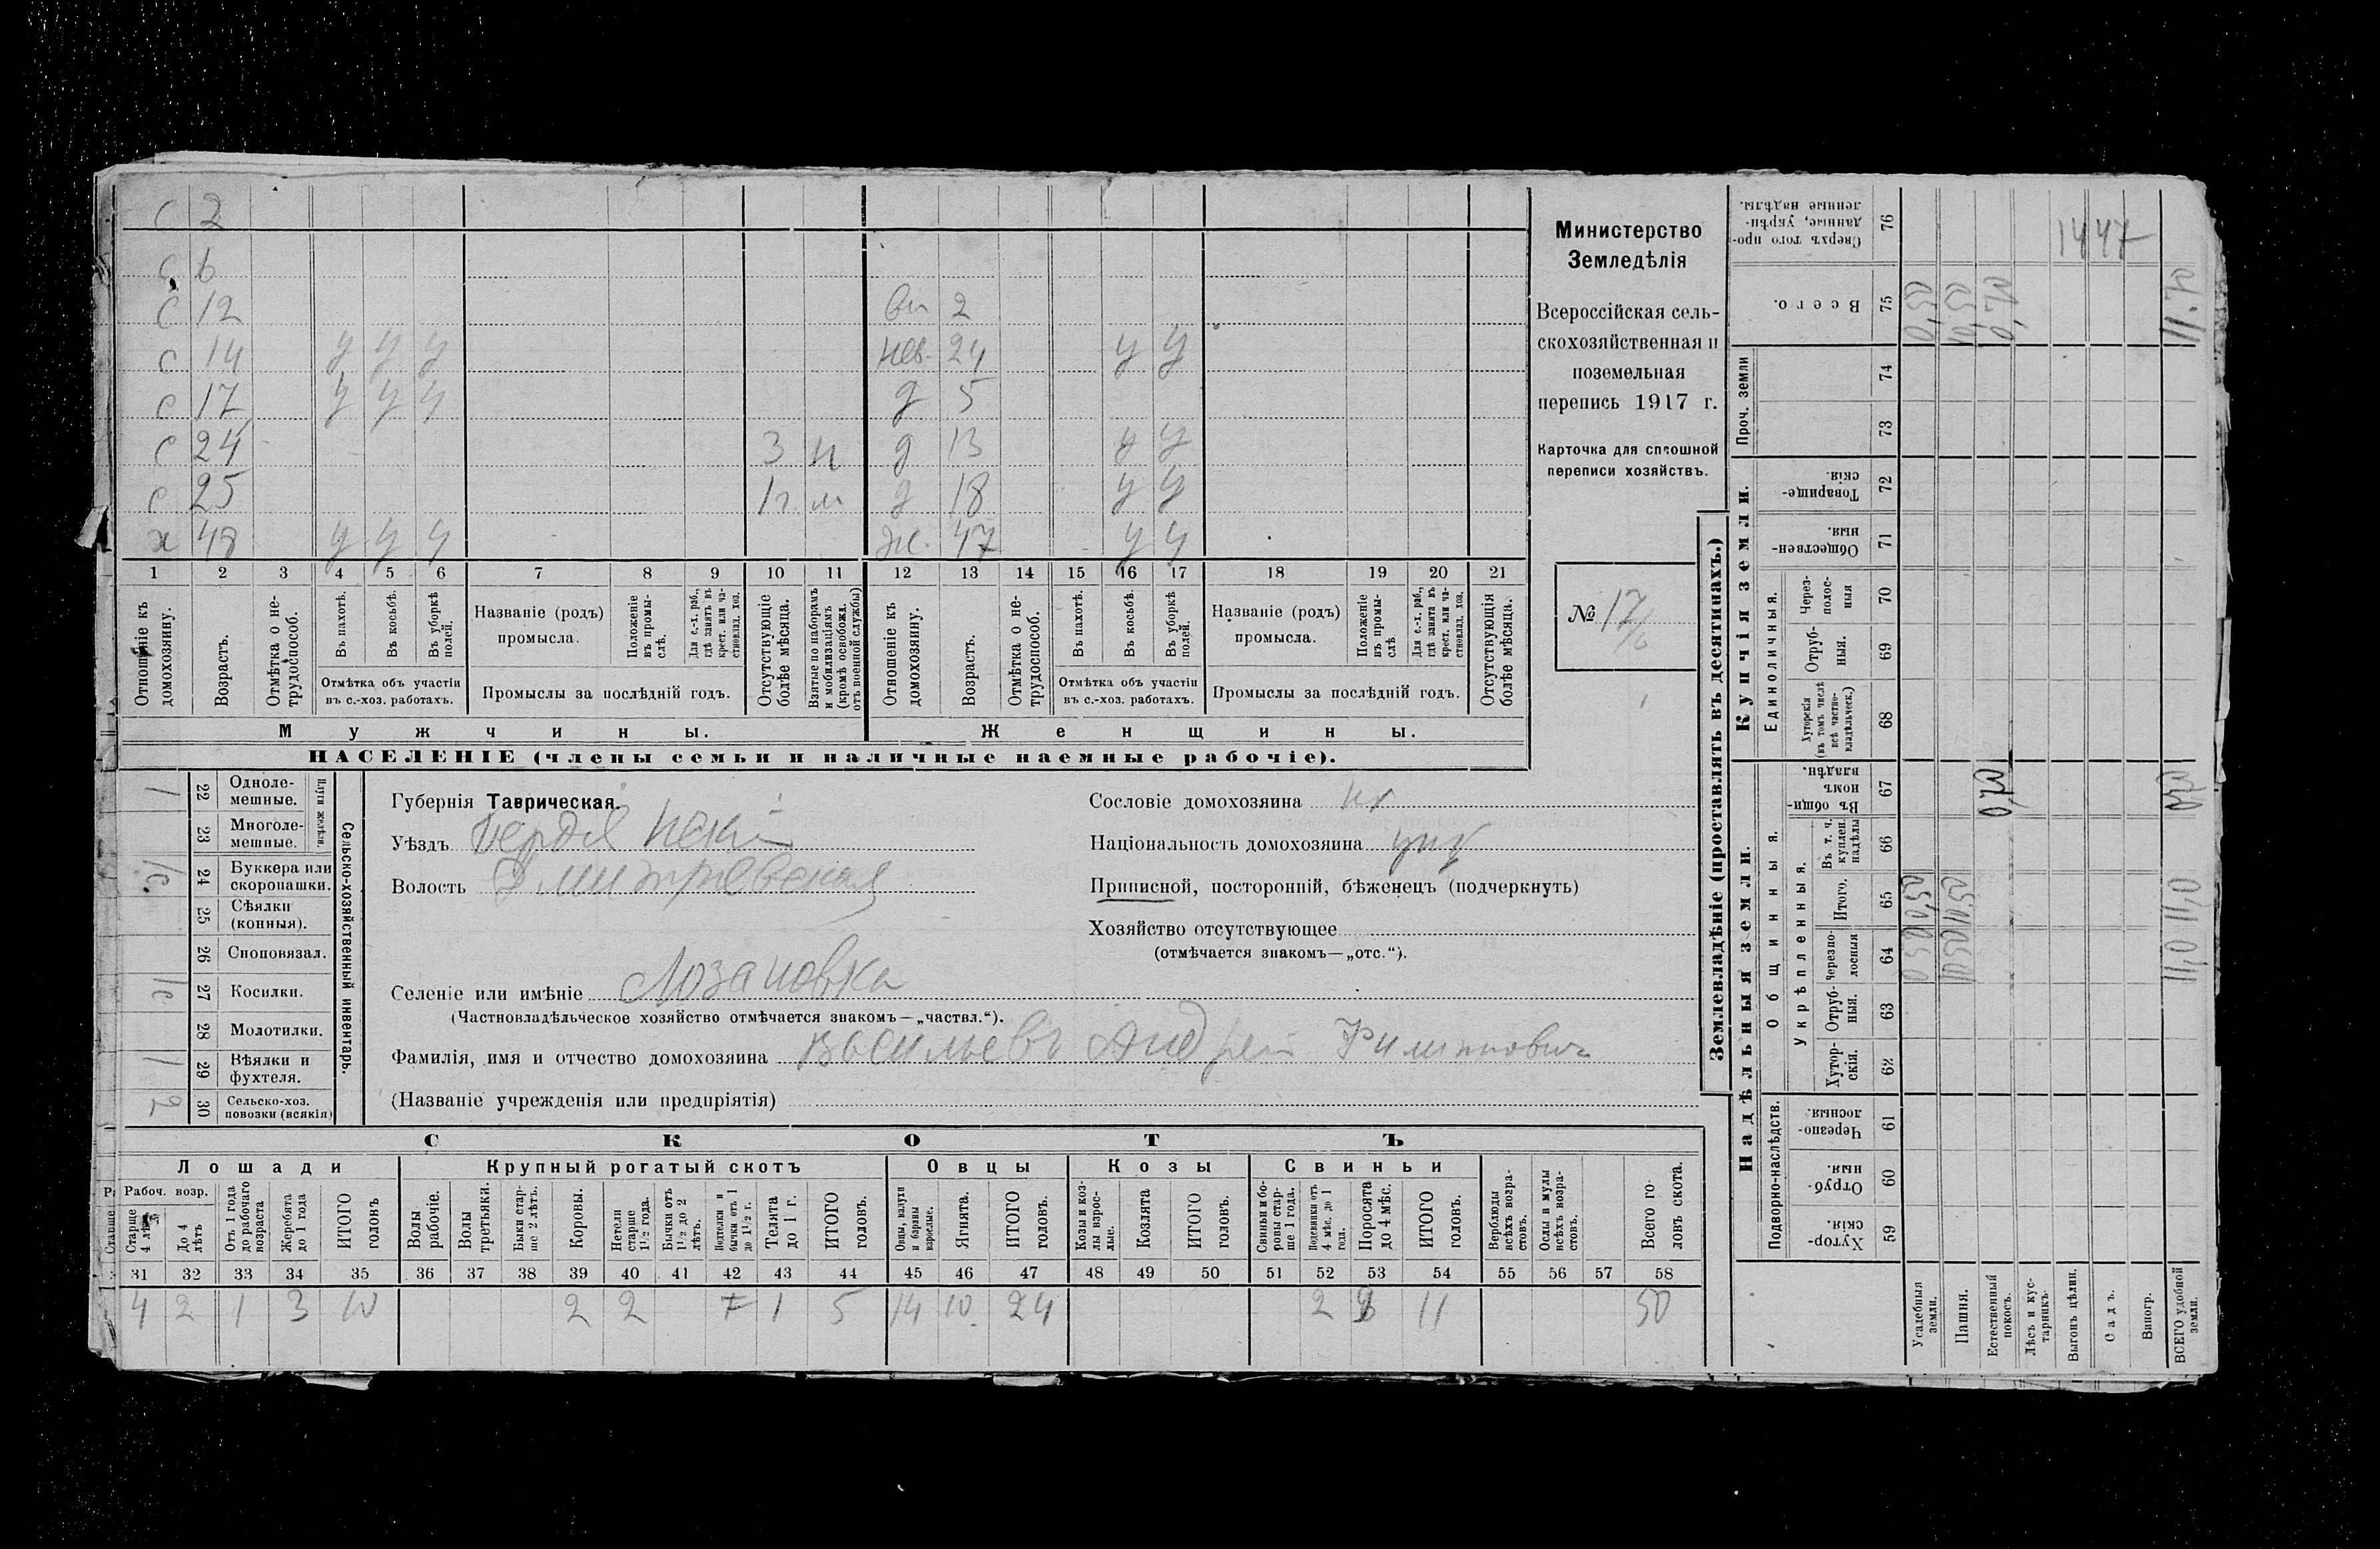 с 2
с 6
с 12 вн 2
с 14 у у у нев. 24 у у
с 17 у у у д 5
с 24 3 м д 13 у у
с 25 1 г. м д 18 у у
х 48 у у у ж. 47 у у
1 2 3 4 5 6 7 8 9 10 11 12 13 14 15 16 17 18 19 20 21
Отношеніе къ домохозяину.
Возрастъ.
Отмѣтка о нетрудоспособ.
Въ пахотѣ.
Въ косьбѣ.
Въ уборкѣ полей.
Отмѣтка объ участіи въ с.-хоз. работахъ.
Названіе (родъ) промысла.
Положеніе въ промыслѣ.
Для с.-х. раб., гдѣ занятъ въ крест. или частновлад. хоз.
Промыслы за послѣдній годъ.
Отсутствующіе болѣе мѣсяца.
Взятые по наборамъ и мобилизаціямъ (кромѣ освобожд. отъ военной службы)
Отношеніе къ домохозяину.
Возрастъ.
Отмѣтка о нетрудоспособ.
Въ пахотѣ.
Въ косьбѣ.
Въ уборкѣ полей.
Отмѣтка объ участіи въ с.-хоз. работахъ.
Названіе (родъ) промысла.
Положеніе въ промыслѣ
Для с.-х. раб., гдѣ занята въ крест. или частновлад. хоз.
Промыслы за послѣдній годъ.
Отсутствующія болѣе мѣсяца.
Мужчины. Женщины.
НАСЕЛЕНІЕ (члены семьи и наличные наемные рабочіе).
Министерство
Земледѣлія
Всероссійская сель-
скохозяйственная и
поземельная
перепись 1917 г.
Карточка для сплошной
переписи хозяйствъ.
№ 17/6
Сельско-хозяйственный инвентарь.
Плуги желѣзн.
22 Одноле-мешные. 1
23 Многоле-мешные.
24 Буккера или скоропашки. 1с.
25 Сѣялки (конныя).
26 Сноповязал.
27 Косилки. 1с
28 Молотилки.
29 Вѣялки и фухтеля. 1
30 Сельско-хоз. повозки (всякія) 2
Губернія Таврическая.
Уѣздъ Бердянскій
Волость Дмитріевская
Сословіе домохозяина кр
Національность домохозяина укр
Приписной, посторонній, бѣженецъ (подчеркнуть)
Хозяйство отсутствующее
(отмѣчается знакомъ—„отс.“).
Селеніе или имѣніе Лозановка
(Частновладѣльческое хозяйство отмѣчается знакомъ—„частвл.“).
Фамилія, имя и отчество домохозяина Васильевъ Андрей Филиппович
(Названіе учрежденія или предпріятія)
СКОТЪ
Лошади Крупный рогатый скотъ Овцы Козы Свиньи
Рабоч. возр.
Старше 4 лѣтъ
До 4 лѣтъ
Отъ 1 года до рабочаго возраста
Жеребята до 1 года
ИТОГО головъ
Волы рабочіе.
Волы третьяки.
Быки старше 2 лѣтъ.
Коровы.
Нетели старше 1½ года.
Бычки отъ 1½ до 2 лѣтъ.
Подтелки и бычки отъ 1 до 1½ г.
Телята до 1 г.
ИТОГО головъ.
Овцы, валухи и бараны взрослые.
Ягнята.
ИТОГО головъ.
Козы и козлы взрослые.
Козлята
ИТОГО головъ.
Свиньи и боровы старше 1 года.
Подсвинки отъ 4 мѣс. до 1 года.
Поросята до 4 мѣс.
ИТОГО головъ.
Верблюды всѣхъ возрастовъ.
Ослы и мулы всѣхъ возрастовъ.
Всего головъ скота.
31 32 33 34 35 36 37 38 39 40 41 42 43 44 45 46 47 48 49 50 51 52 53 54 55 56 57 58
4 2 1 3 10 2 2 1 5 14 10 24 2 11 50
Землевладѣніе (проставлять въ десятинахъ.)
Купчія земли.
Надѣльныя земли.
Сверхъ того проданные, укрѣпленные надѣлы. 76
1447
Всего. 75 0,50 10,50 0,70 11.70
Проч. земли 74
73
Товарищескія. 72
Общественныя. 71
Единоличныя.
Черезполосныя 70
Отрубныя. 69
Хуторскія (въ томъ числѣ всѣ частновладѣльческ.) 68
Общинныя.
Въ общинномъ владѣн. 67 0,70 0,70
Укрѣпленныя.
Въ т. ч. куплен. надѣлы 66
Итого. 65 0,50 10,50 11,0
Черезполосныя 64 0,50 10,50 11,0
Отрубныя. 63
Хуторскія. 62
Подворно-наслѣдств.
Черезполосныя. 61
Отрубныя. 60
Хуторскія. 59
Усадебныя земли.
Пашня.
Естественный покосъ.
Лѣсъ и кустарникъ.
Выгонъ цѣлин.
Садъ.
Виногр.
ВСЕГО удобной земли.